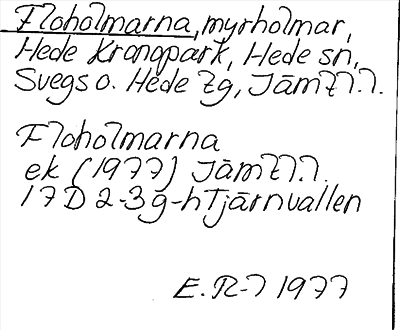 Floholmarna, myrholmar,
Hede Kronopark, Hede sn,
Svegs o. Hede tg, Jämtl.l.
Floholmarna
ek (1977) Jämtl.l.
17D 2-3g-h Tjärnvallen
E. R-l 1977